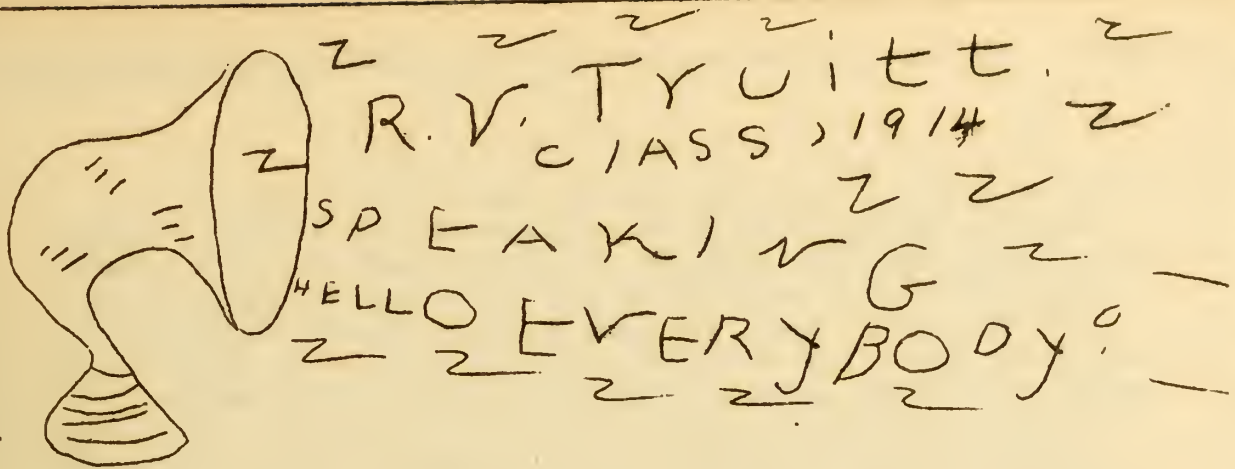 R. V. Truitt.
CLASS, 1914
SPEAKING
HELLO EVERYBODY!